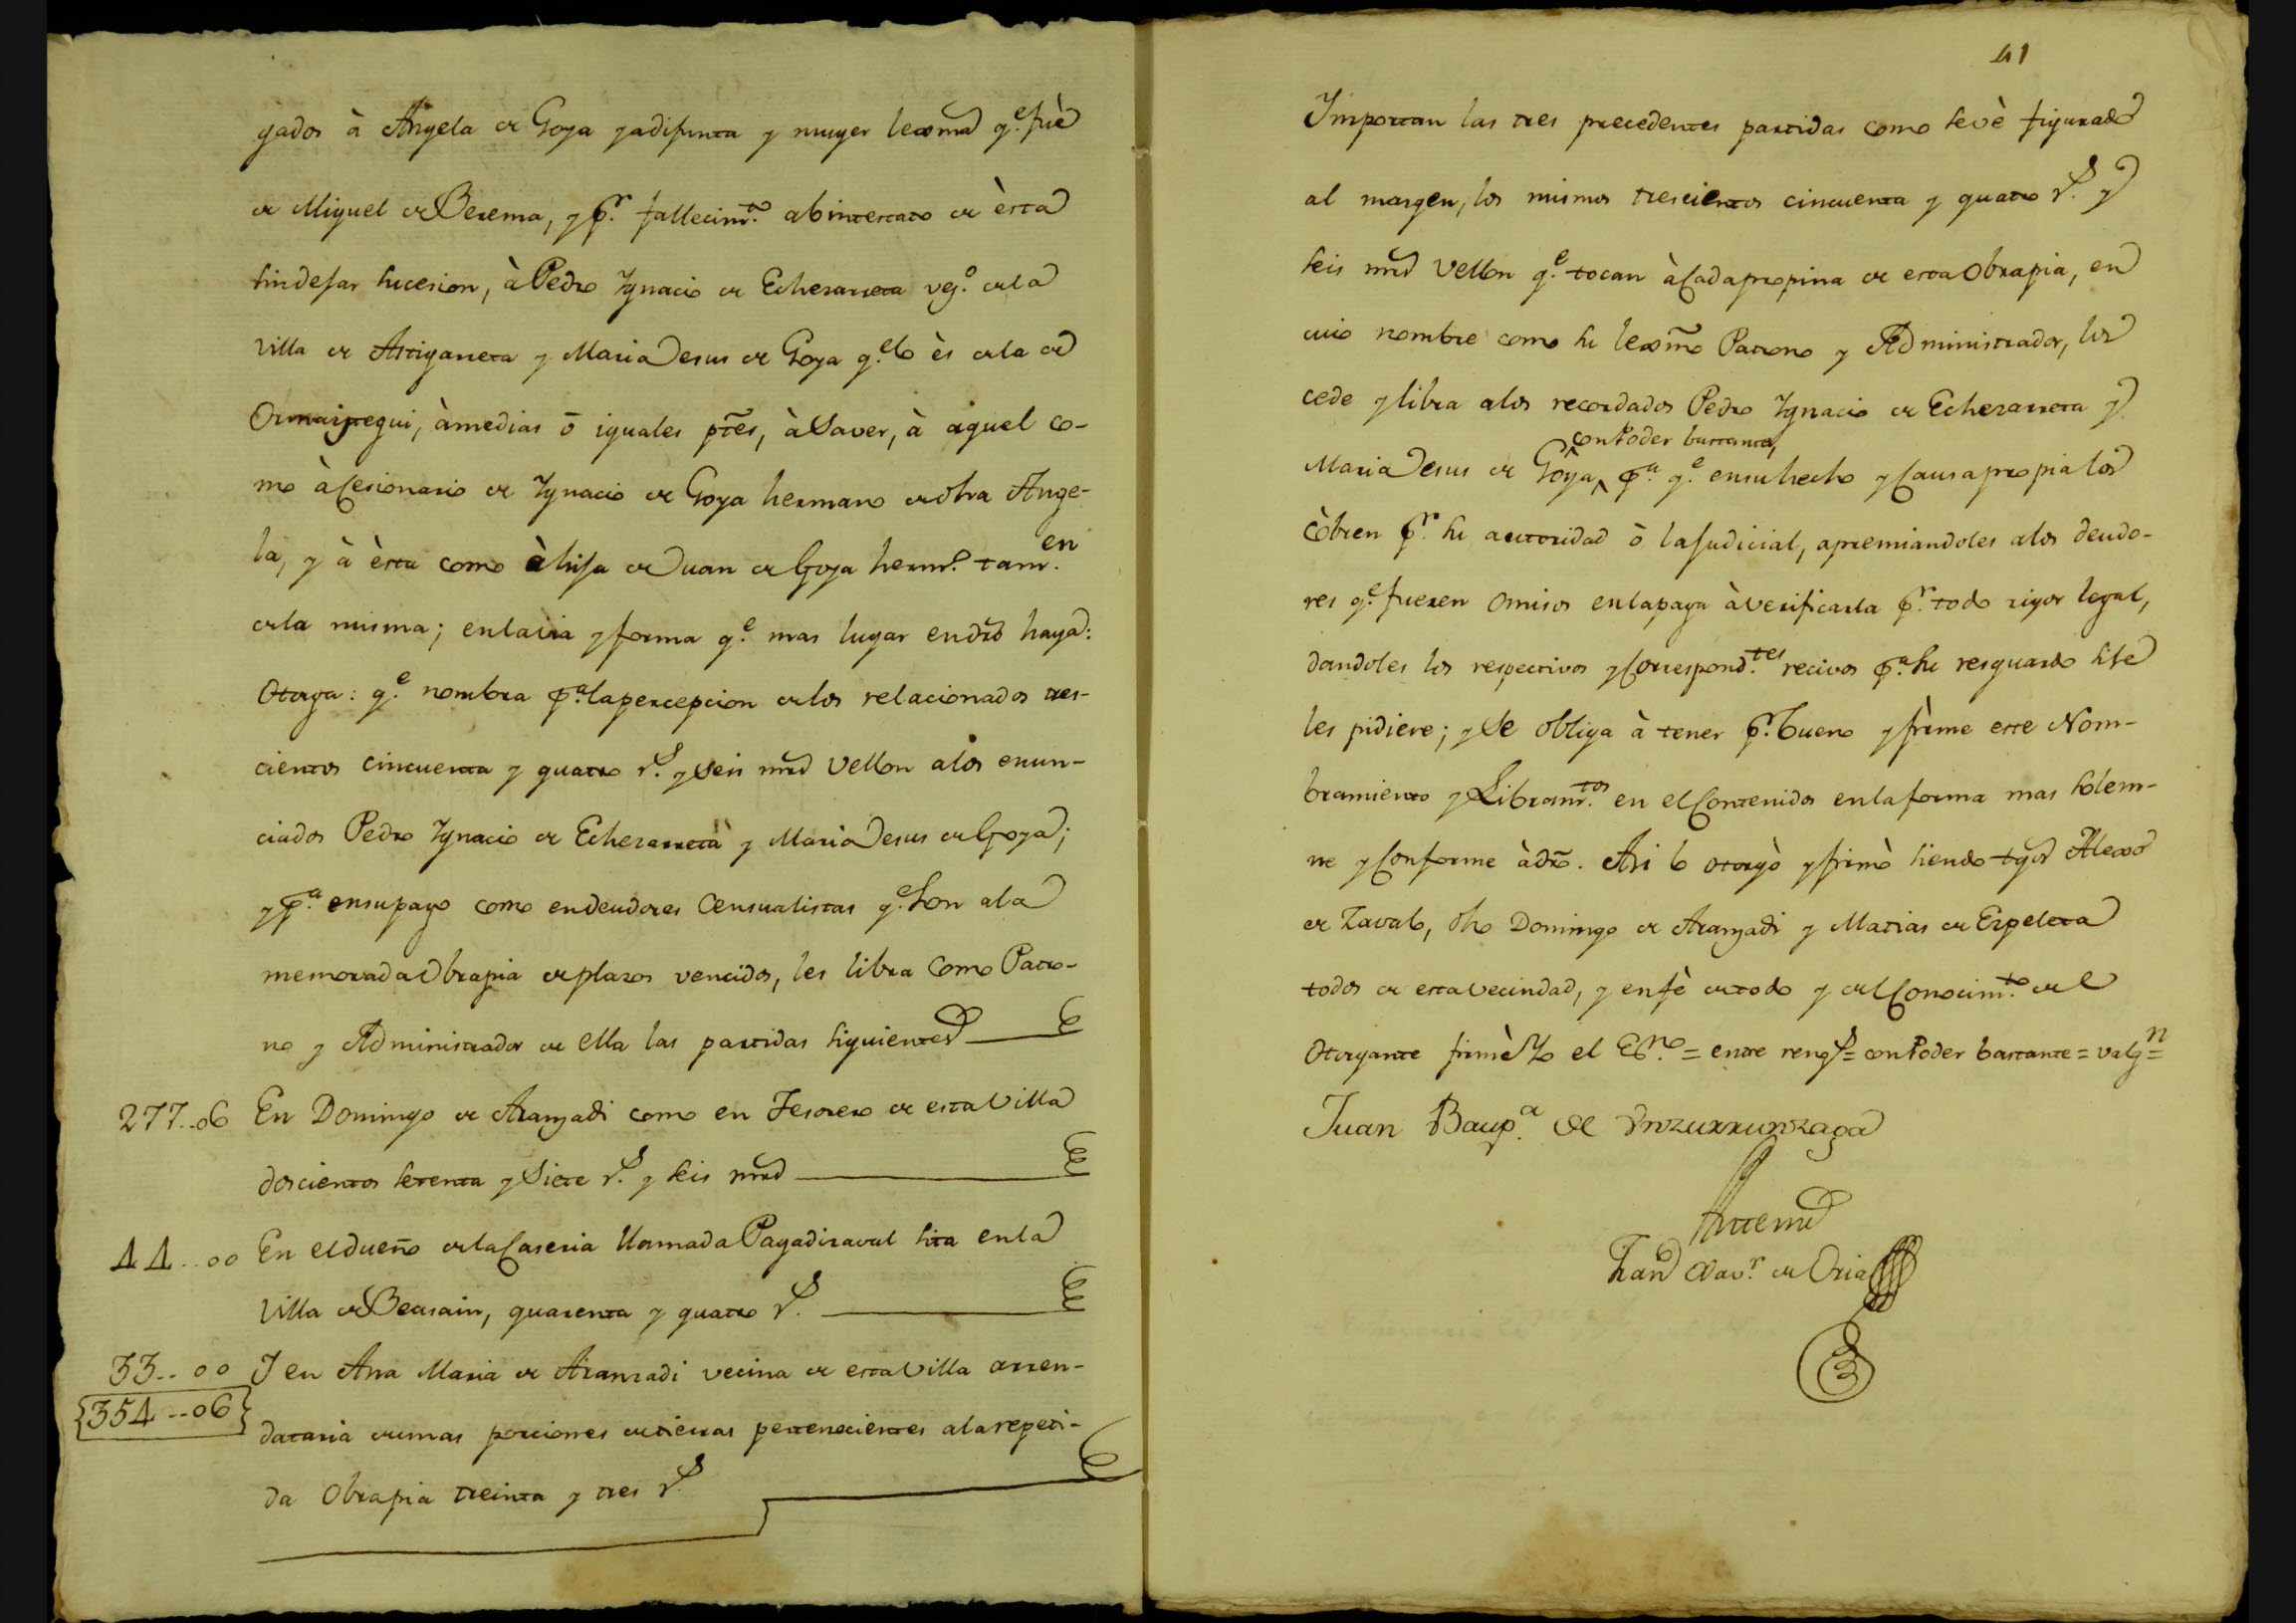 gados à Angela de Goya yadifunta y muger lexma q.e fuè
de Miguel de Berema, y p.r fallecim.to abintestato de èsta
sindejar sucesion, à Pedro Ygnacio de Echezarreta veg.o dela
Villa de Astigarreta y Maria Jesus de Goya q.e lo ès dela de
Ormaiztegui, àmedias ō iguales ptes, àSaver, à aquel co-
mo àCesionario de Ygnacio de Goya hermano de dha Ange-
la, y à èsta como àhija de Juan de Goya herm.o tam.en
dela misma; enlavia yforma q.e mas lugar endro haya:
Otorga: q.e nombra p.a lapercepcion delos relacionados tres-
cientos cincuenta y quatro r.s y Seis mrs Vellon alos enun-
ciados Pedro Ygnacio de Echezarreta y Maria Jesus de Goya;
y p.a ensupago como endeudores Censualistas q.e Son ala
memorada Obrapia deplazos vencidos, les libra Como Patro-
no y Administrador de ella las partidas siguientes
277..06 En Domingo de Aranzadi como en Tesorero de estaVilla
doscientos setenta ySiete r.s y seis mrs
44..00 En eldueño delaCaseria llamada Pagadizaval sita enla
Villa de Beasain, quarenta y quatro r.s
33..00 Y en Ana Maria de Aranzadi vecina de estaVilla arren-
354..06
dataria deunas porciones detierras pertenecientes alarepeti-
da Obrapia treinta y tres r.s
41
Ymportan las tres precedentes partidas como sevè figurado
al margen, los mismos trescientos cincuenta y quatro r.s y
seis mrs Vellon q.e tocan àCadapropina de esta Obrapia, en
cuio nombre como su lexmo Patrono y Administrador, los
cede ylibra alos recordados Pedro Ygnacio de Echezarreta y
conPoder bastante,
Maria Jesus de Goya ^ p.a q.e ensuhecho yCausapropia los
còbren p.r su autoridad ō laJudicial, apremiandoles alos deudo-
res q.e fueren Omisos enlapaga àverificarla p.r todo rigor legal,
dandoles los respectivos yCorrespond.tes recivos p.a su resguardo sise
les pidiere; ySe obliga à tener p.r bueno yfirme este Nom-
bramiento yLibram.tos en elContenidos enlaforma mas solem-
ne yConforme àdro. Asi lo otorgò yfirmò siendo tgos Alexo
de Zavalo, dho Domingo de Aranzadi y Matias de Ezpeleta
todos de estavecindad, y enfè detodo y delConocim.to del
Otorgante firmè Yo el Es.no = entre reng.s = conPoder bastante = valg.n =
Juan Baup.a de Vnzurrunzaga
Antemi
Fran.co Xav.r de Oria